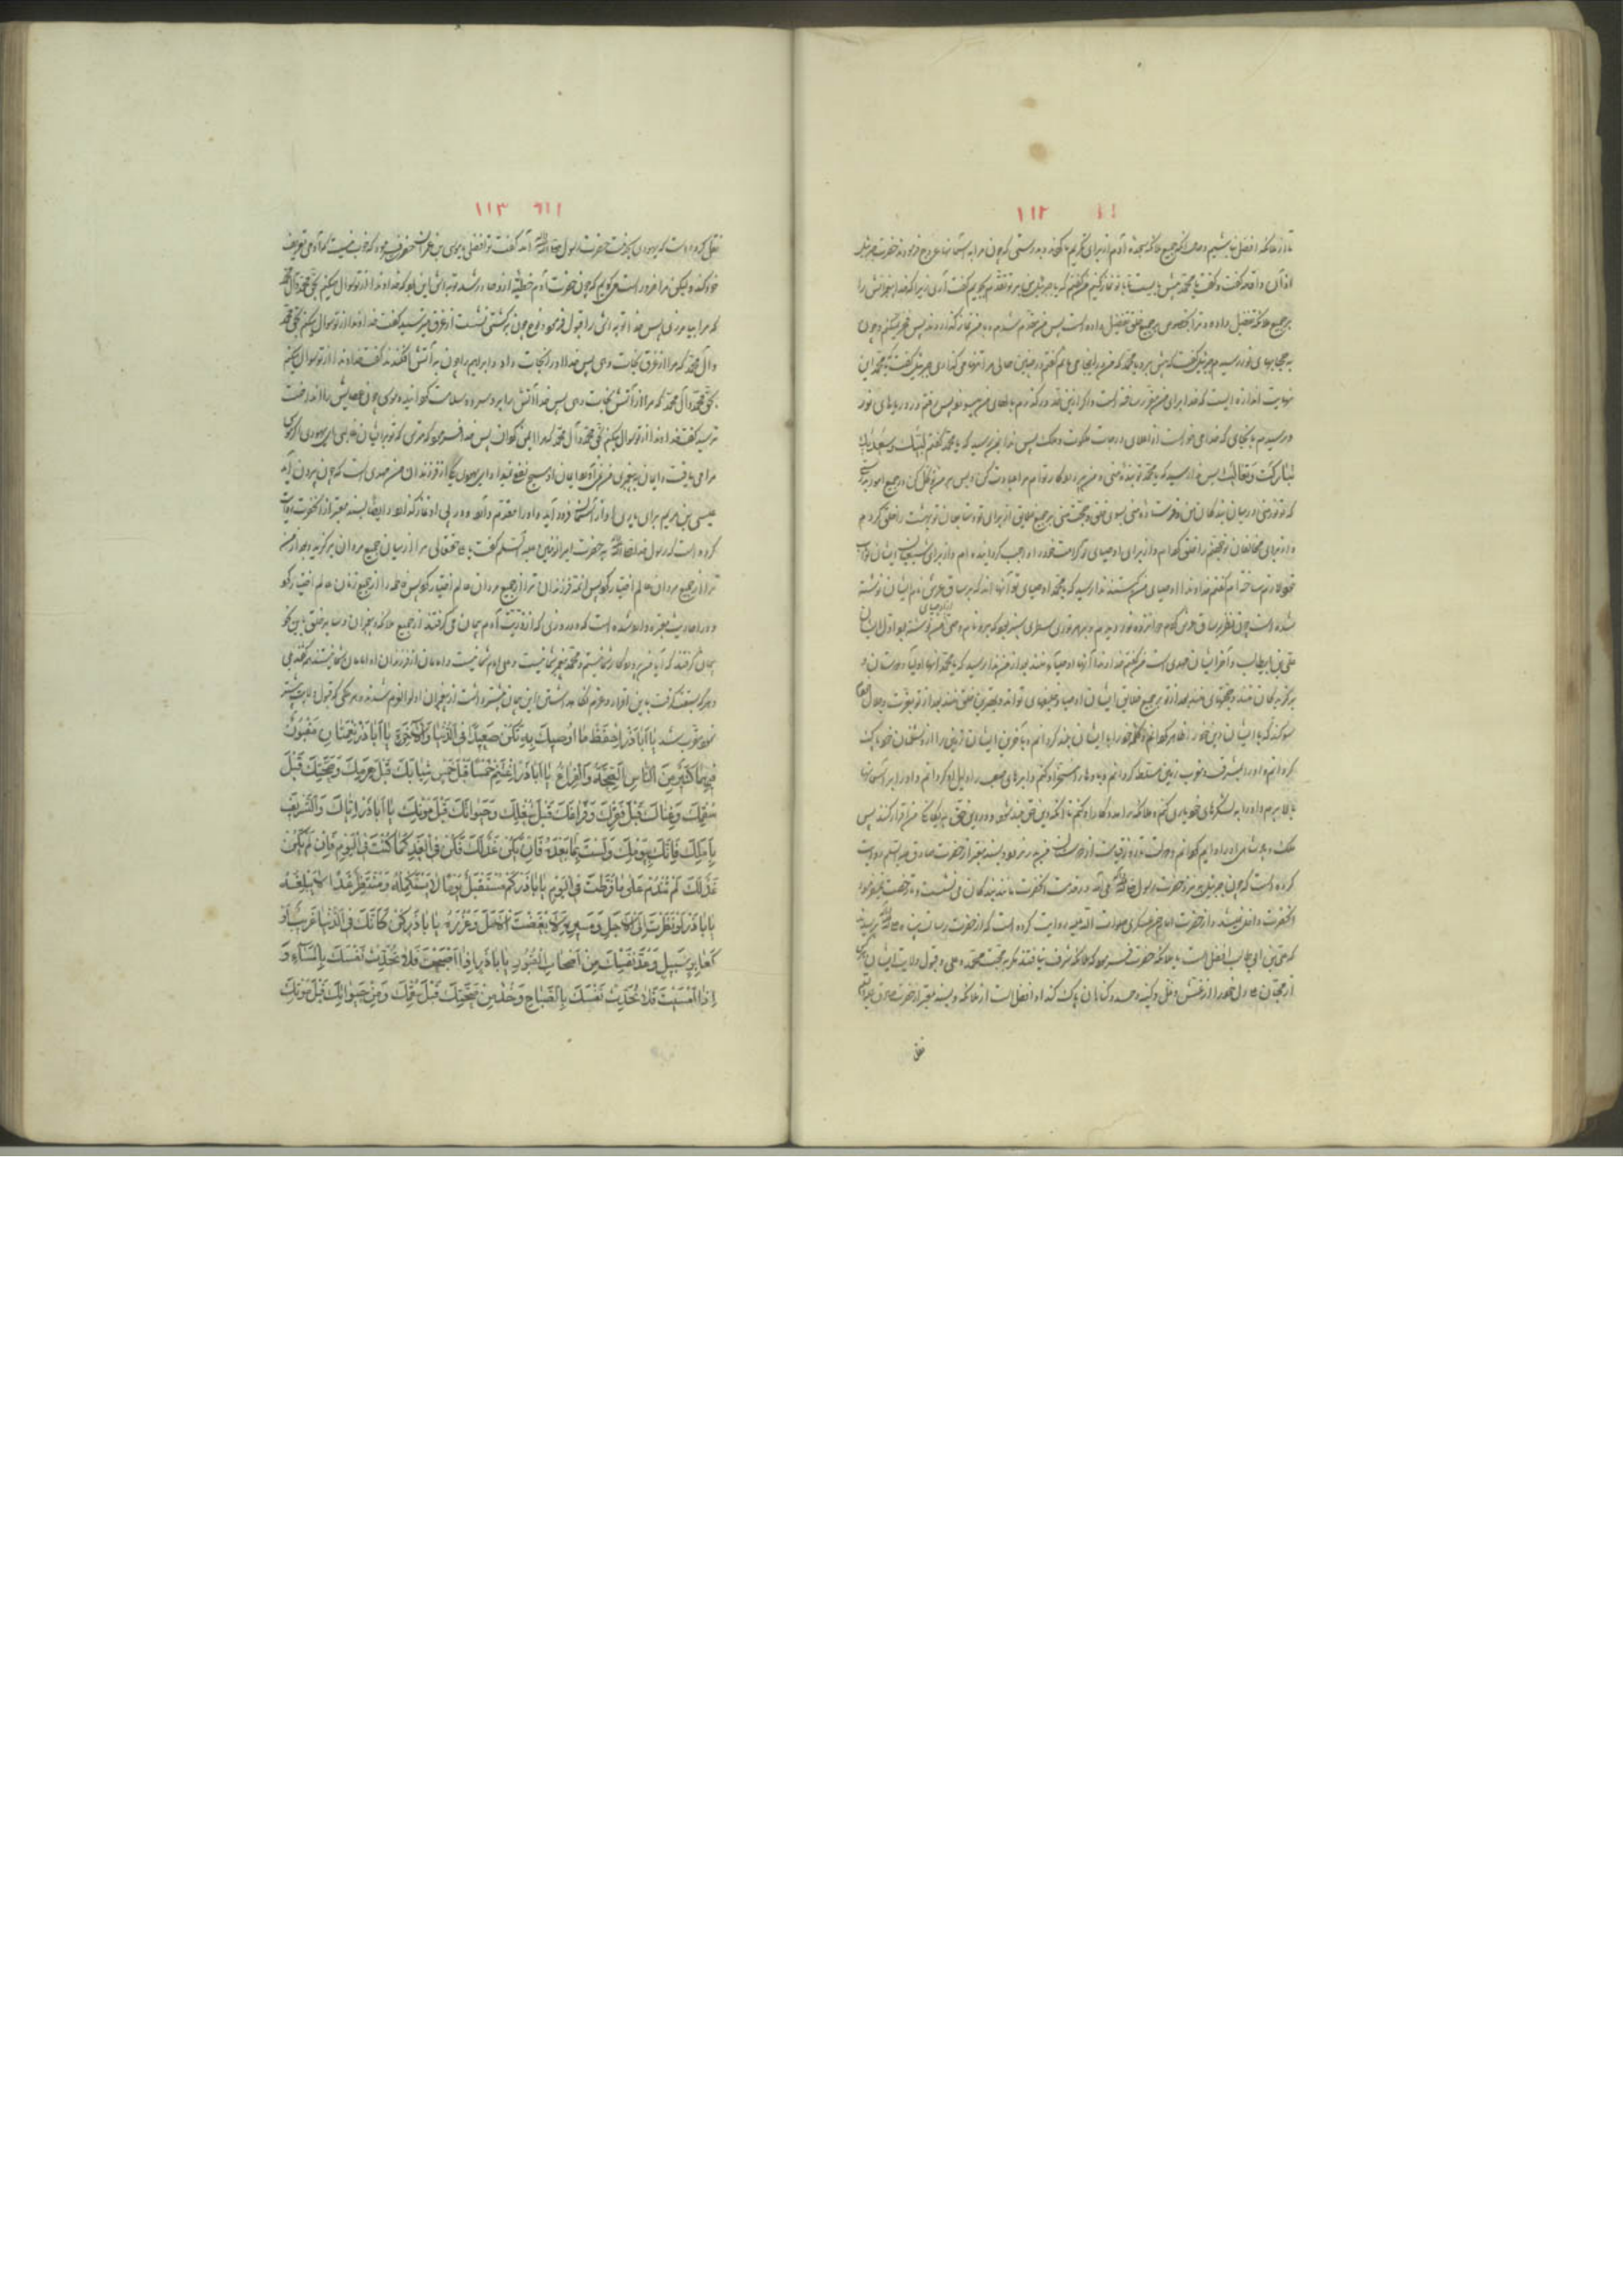 ۱۱۲
تا از ملائکه افضل نباشیم و حال آنکه جمیع ملائکه سجده آدم از برای تکریم ما کردند و به درستی که چون مرا به آسمانها عروج فرمودند حضرت جبرئیل
اذان و اقامه گفت و گفت یا محمد پیش بایست تا با تو نماز کنیم من گفتم که یا جبرئیل من بر تو تقدم بجویم گفت آری زیرا که خدا پیغمبرانش را
بر جمیع ملائکه تفضیل داده و ترا بخصوص بر جمیع خلق تفضیل داده است پس من مقدم شدم و با من نماز گذاردند پس فخر نمیکنم و چون
به حجابهای نور رسیدم جبرئیل گفت که پیش برو یا محمد که من در اینجا می‌مانم گفتم در چنین حالی مرا تنها می‌گذاری جبرئیل گفت که یا محمد این
نهایت اندازه ایست که خدا برای من مقرر ساخته است و اگر ازین قدر در گذرم بالهای من میسوزد پس رفتم در دریاهای نور
و رسیدم به جایی که خدا می‌خواست از اعلای درجات ملکوت و ملک پس ندا به من رسید که یا محمد گفتم لبیک و سعدیک
تبارکت و تعالیت پس ندا رسید که یا محمد تو بنده منی و من پروردگار توام مرا عبادت کن و بس بر من توکل کن در جمیع امور
که تو نور منی در میان بندگان من و فرستاده منی بسوی خلق و حجت منی بر جمیع خلایق از برای تو و متابعان تو بهشت را خلق کرده‌ام
و از برای مخالفان تو جهنم را خلق کرده‌ام و از برای اوصیای تو کرامت خود را واجب گردانیده‌ام و از برای شیعیان ایشان ثواب
خود لازم ساخته‌ام گفتم خداوندا اوصیای من کیستند ندا رسید که یا محمد اوصیای تو آنها اند که بر ساق عرش نام ایشان نوشته
شده است چون نظر بر ساق عرش کردم دوازده نور دیدم و بر هر نوری سطری سبز بود که بر او نام وصی از اوصیای من نوشته بود اول ایشان
علی بن ابیطالب و آخر ایشان مهدی است من گفتم خداوندا آنها اوصیاء منند بعد از من ندا رسید که یا محمد آنها اولیا و دوستان و
برگزیدگان منند و حجتهای منند بعد از تو بر جمیع خلایق ایشان اوصیا و خلیفهای تو اند و بهترین خلق منند بعد از تو بعزت و جلال خودم
سوگند که با ایشان دین خود را ظاهر گردانم و کلمه خود را با ایشان بلند گردانم و به آخرین ایشان زمین را از دشمنان خود پاک
گردانم و او را بمشرق و مغرب زمین مسلط گردانم و بادها را مسخر او کنم و ابرهای صعب را ذلیل او گردانم و او را بر آسمانها
بالا برم و او را به لشکرهای خود یاری کنم و ملائکه را مددکار او کنم تا آنکه دین حق بلند شود و جمیع خلق به یگانگی من اقرار کنند پس
ملک و پادشاهی او را دایم گردانم و دولت او تا روز قیامت از دوستان من به در نرود و بسند معتبر از حضرت صادق علیه السلم روایت
کرده است که چون جبرئیل به نزد حضرت رسول ص می‌آمد در خدمت آنحضرت مانند بندگان می‌نشست و تا رخصت نمیفرمود
آنحضرت داخل نمیشد و از حضرت امام حسن عسکری صلوات الله علیه روایت کرده است که از حضرت رسالت پناه پرسیدند
که علی بن ابی طالب افضل است یا ملائکه حضرت فرمود که ملائکه شرف نیافتند مگر به محبت محمد و علی و قبول ولایت ایشان و هر کس
از محبان علی دل خود را از غش و غل و کینه و حسد و گناهان پاک کند او افضل است از ملائکه و بسند معتبر از حضرت صادق علیه السلم
۱۱۳
نقل کرده است که یهودی بخدمت حضرت رسول ص آمد گفت تو افضلی یا موسی بن عمران حضرت فرمود که خوب نیست که آدمی تعریف
خود کند و لیکن مرا ضرور است می‌گویم که چون حضرت آدم خطیئه ازو صادر شد توبه‌اش این بود که خداوندا از تو سوال میکنم بحق محمد و آل محمد
که مرا بیامرزی پس خدا توبه‌اش را قبول فرمود و نوح چون به کشتی نشست از غرق میترسید گفت خداوندا از تو سوال میکنم بحق محمد
و آل محمد که مرا از غرق نجات دهی پس خدا او را نجات داد و ابراهیم را چون به آتش افکندند گفت خداوندا از تو سوال میکنم
بحق محمد و آل محمد که مرا از آتش نجات دهی پس خدا آتش را برد و سلامت گردانید و موسی چون عصایش را انداخت
ترسید گفت خداوندا از تو سوال میکنم بحق محمد و آل محمد که مرا ایمن گردان پس خدا فرمود که مترس که تو بر ایشان غالبی ای یهودی اگر موسی
مرا می‌یافت و ایمان به پیغمبری من نمی‌آورد ایمان او هیچ نفع نمیداد ای یهودی از فرزندان من مهدی است که چون بیرون آید
عیسی بن مریم برای یاری او از آسمان فرود آید و او را مقدم دارد و در پی او نماز گذارد و ایضا بسند معتبر از آنحضرت روایت
کرده است که رسول خدا ص به حضرت امیرالمؤمنین علیه السلم گفت یا علی حق تعالی مرا از میان جمیع مردان برگزید و بعد از من
ترا از جمیع مردان عالم اختیار کرد پس ائمه فرزندان ترا از جمیع مردان عالم اختیار کرد پس فاطمه را از جمیع زنان عالم اختیار کرد
و در احادیث معتبره وارد شده است که در روزی که از ذریت آدم پیمان می‌گرفتند از جمیع ملائکه و پیغمبران و سایر خلق باین نحو
پیمان گرفتند که آیا من پروردگار شما نیستم و محمد پیغمبر شما نیست و علی امام شما نیست و امامان از فرزندان او امامان شما نیستند همه گفتند بلی
و هر که سبقت گرفت باین اقرار و عزم نگاهداشتن این پیمان بیشتر داشت از پیغمبران اولوالعزم شدند و هر ملکی که قبول ولایت بیشتر
نمود مقرب شد یا اباذر احفظ ما اوصیک به تکن سعیدا فی الدنیا والآخرة یا اباذر نعمتان مغبون
فیهما کثیر من الناس الصحة والفراغ یا اباذر اغتنم خمسا قبل خمس شبابک قبل هرمک وصحتک قبل
سقمک وغناک قبل فقرک وفراغک قبل شغلک وحیوتک قبل موتک یا اباذر ایاک والتسویف
باملک فانک بیومک ولست بما بعده فان یکن غد لک فکن فی الغد کما کنت فی الیوم فان لم یکن
غد لک لم تندم علی ما فرطت فی الیوم یا اباذر کم مستقبل یوما لا یستکمله ومنتظر غدا لا یبلغه
یا اباذر لو نظرت الی الاجل ومسیره لابغضت الامل وغروره یا اباذر کن کانک فی الدنیا غریب او
کعابر سبیل وعد نفسک من اصحاب القبور یا اباذر اذا اصبحت فلا تحدث نفسک بالمساء و
اذا امسیت فلا تحدث نفسک بالصباح وخذ من صحتک قبل سقمک ومن حیوتک قبل موتک